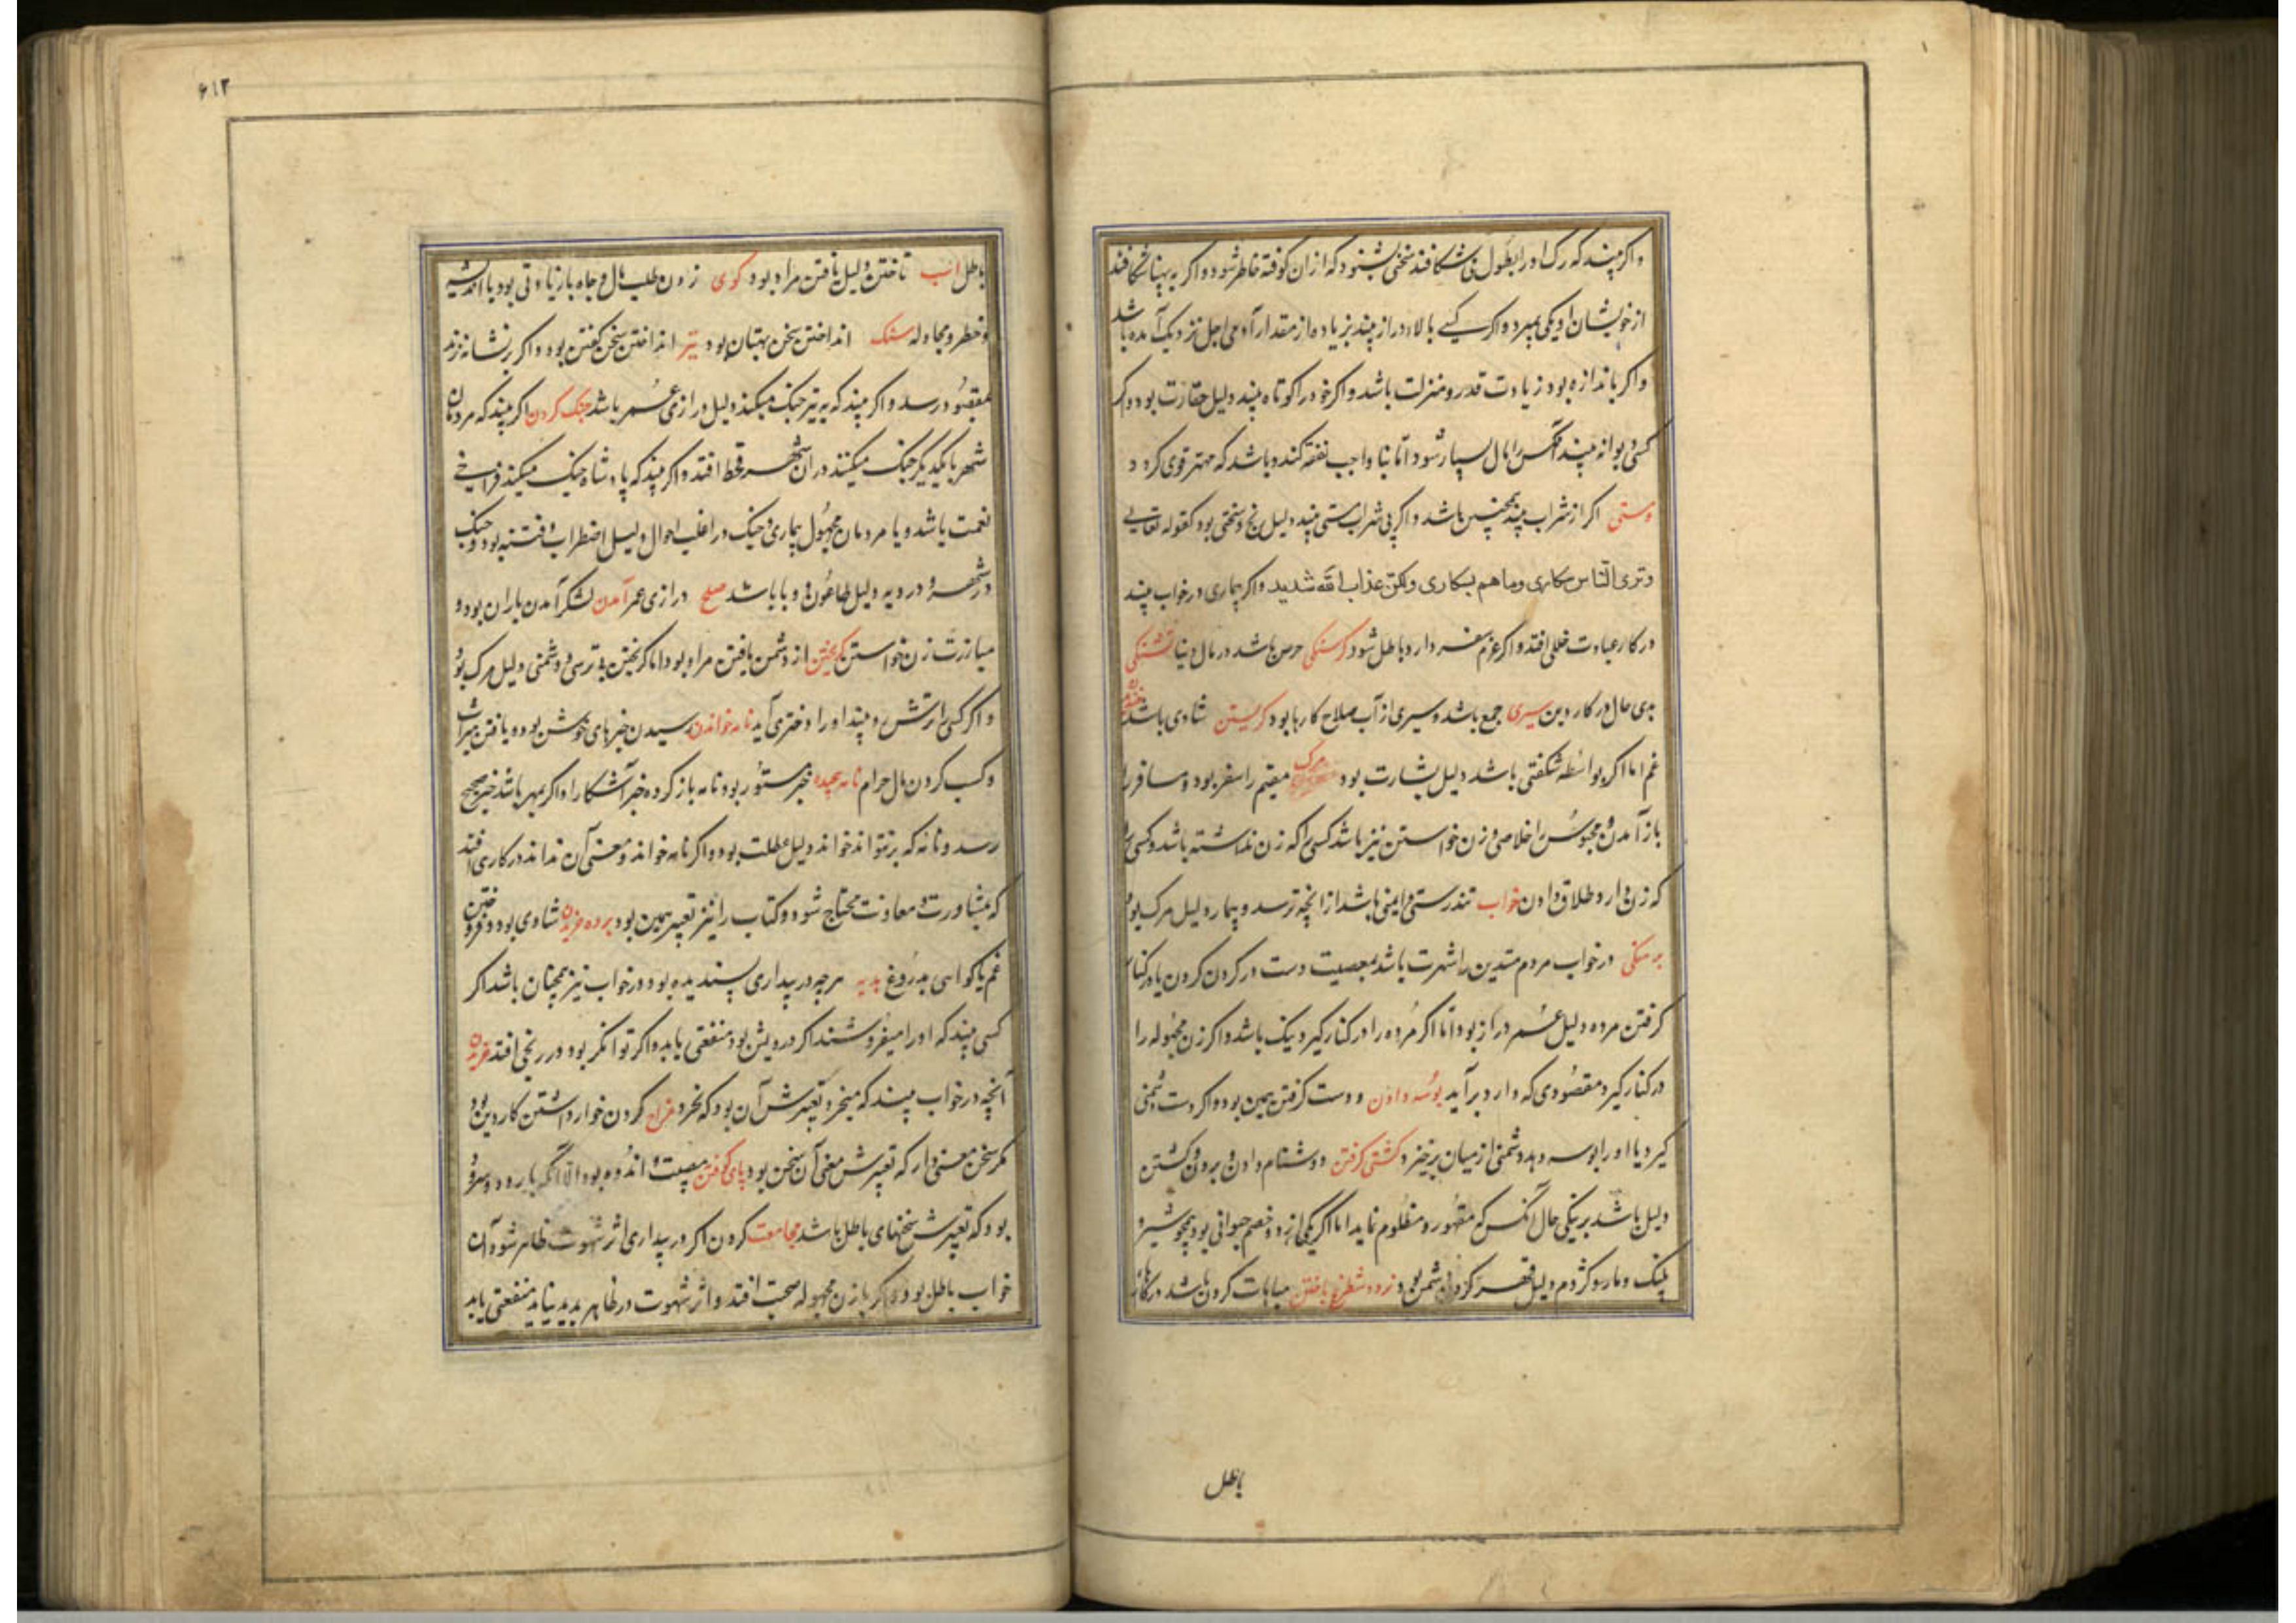 واکر بیند که رک او را بطول می شکافند سخنی بشنود که از ان کوفته خاطر شود و اکر به پهنا شکافند
از خویشان او یکی بمیرد و اکر کسی بالا دراز بیند بزیاده از مقدار آدمی اجل نزدیک آمده باشد
واکر باندازه بود زیادت قدر و منزلت باشد و اکر خود را کوتاه بیند دلیل حقارت بود و اکر
کسی دیوانه بیند آنکس را مال بسیار شود اما بنا واجب نفقه کند و باشد که مهتر قوی کردد
ومستی اکر از شراب بیند همچنین باشد و اکر بی شراب مستی بیند دلیل رنج و سختی بود کقوله تعالی
وتری الناس سکاری وما هم بسکاری ولکن عذاب الله شدید واکر بیماری در خواب بیند
در کار عبادت خللی افتد و اکر عزم سفر دارد باطل شود کرسنکی حرص باشد در مال دنیا تشنکی
بدی حال در کار دین سیری جمع باشد و سیری از آب صلاح کارها بود کریستن شادی باشد خنده
غم اما اکر بواسطه شکفتی باشد دلیل بشارت بود مرک مقیم را سفر بود و مسافر را
باز آمدن و محبوس را خلاصی و زن خواستن نیز باشد کسی را که زن نداشته باشد و کسی را
که زن دارد طلاق دادن خواب تندرستی و ایمنی باشد از انچه ترسد و بیمار دلیل مرک بود
برهنکی در خواب مردم متدین را شهرت باشد بمعصیت دست در کردن کردن یا در کنار
کرفتن مرده دلیل عمر دراز بود اما اکر مرده را در کنار کیرد نیک باشد و اکر زن مجهوله را
در کنار کیرد مقصودی که دارد برآید بوسه دادن و دست کرفتن همین بود و اکر دست دشمنی
کیرد یا او را بوسه دهد دشمنی از میان برخیزد کشتی کرفتن و دشنام دادن و بردن و کشتن
دلیل باشد بر نیکی حال انکس که مقهور و مظلوم نماید اما اکر یکی از دو خصم حیوانی بود همچو شیر و
پلنک و مار و کژدم دلیل قهر کردن دشمن بود نرد و شطرنج باختن مباهات کردن باشد در کارهای
باطل
۶۱۲
باطل اسب تاختن دلیل یافتن مراد بود و کوی زدن طلب مال و جاه با زیادتی بود با اندیشه
و خطر و مجادله سنک انداختن سخن بهتان بود تیر انداختن سخن کفتن بود و اکر بر نشانه زند
بمقصود رسد و اکر بیند که به تیر جنک میکند دلیل درازی عمر باشد جنک کردن اکر بیند که مردمان
شهر با یکدیکر جنک میکنند در ان شهر قحط افتد و اکر بیند که پادشاه جنک میکند فراخی
نعمت باشد و با مردمان مجهول بیماری و جنک در اغلب احوال دلیل اضطراب و فتنه بود و جنک
در شهر و در دیه دلیل طاعون و وبا باشد صلح درازی عمر آمدن لشکر آمدن باران بود و
مبارزت زن خواستن کریختن از دشمن یافتن مراد بود اما کریختن بی ترسی و دشمنی دلیل مرک بود
و اکر کسی را ترش رو بیند او را دختری آید نامه خواندن رسیدن خبرهای خوش بود و یافتن میراث
و کسب کردن مال حرام نامه پیچیده خبر مستور بود نامه باز کرده خبر آشکارا و اکر بمهر باشد خبر صحیح
رسد و نامه که برنتواند خواند دلیل عطلت بود و اکر نامه خواند و معنی آن نداند در کاری افتد
که بمشاورت و معاونت محتاج شود و کتاب را نیز تعبیر همین بود برده خریدن شادی بود و فروختن
غم یا کواهی بدروغ هدیه هرچه در بیداری پسندیده بود در خواب نیز همچنان باشد اکر
کسی بیند که او را میفروشند اکر درویش بود منفعتی یابد و اکر توانکر بود در رنجی افتد خریدن
آنچه در خواب بیند که میخرد تعبیرش آن بود که نخرد مزاح کردن خوار داشتن کار دین بود
مکر سخن معنی دار که تعبیرش معنی آن سخن بود پای کوفتن مصیبت و اندوه بود الا انکه با رود و سرود
بود که تعبیرش سخنهای باطل باشد مجامعت کردن اکر در بیداری اثر شهوت ظاهر شود آن
خواب باطل بود و اکر با زن مجهوله صحبت افتد و اثر شهوت در ظاهر پدید نیاید منفعتی یابد